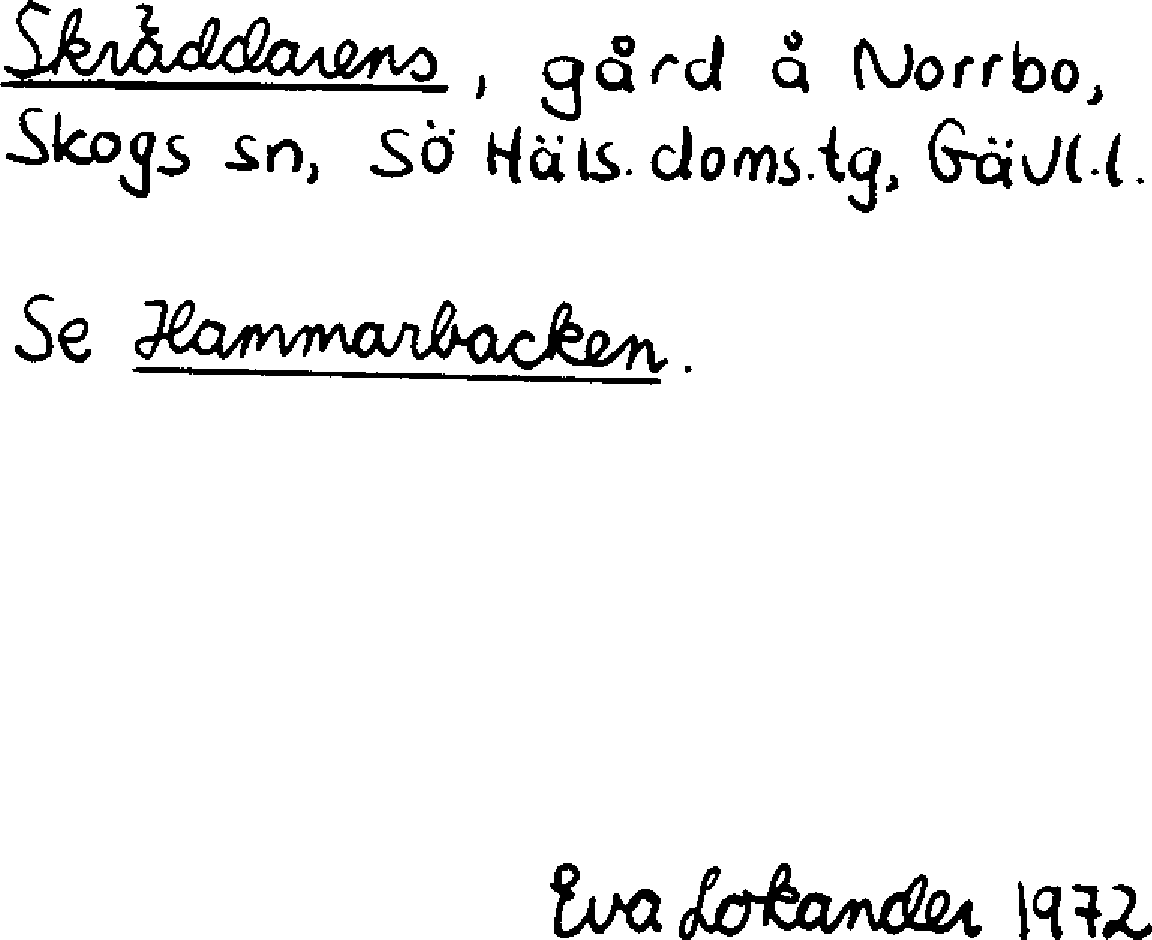 Skräddarens, gård å Norrbo,
Skogs sn, Sö Häls. doms.tg, Gävl.l.
Se Hammarbacken.
Eva Lokander 1972